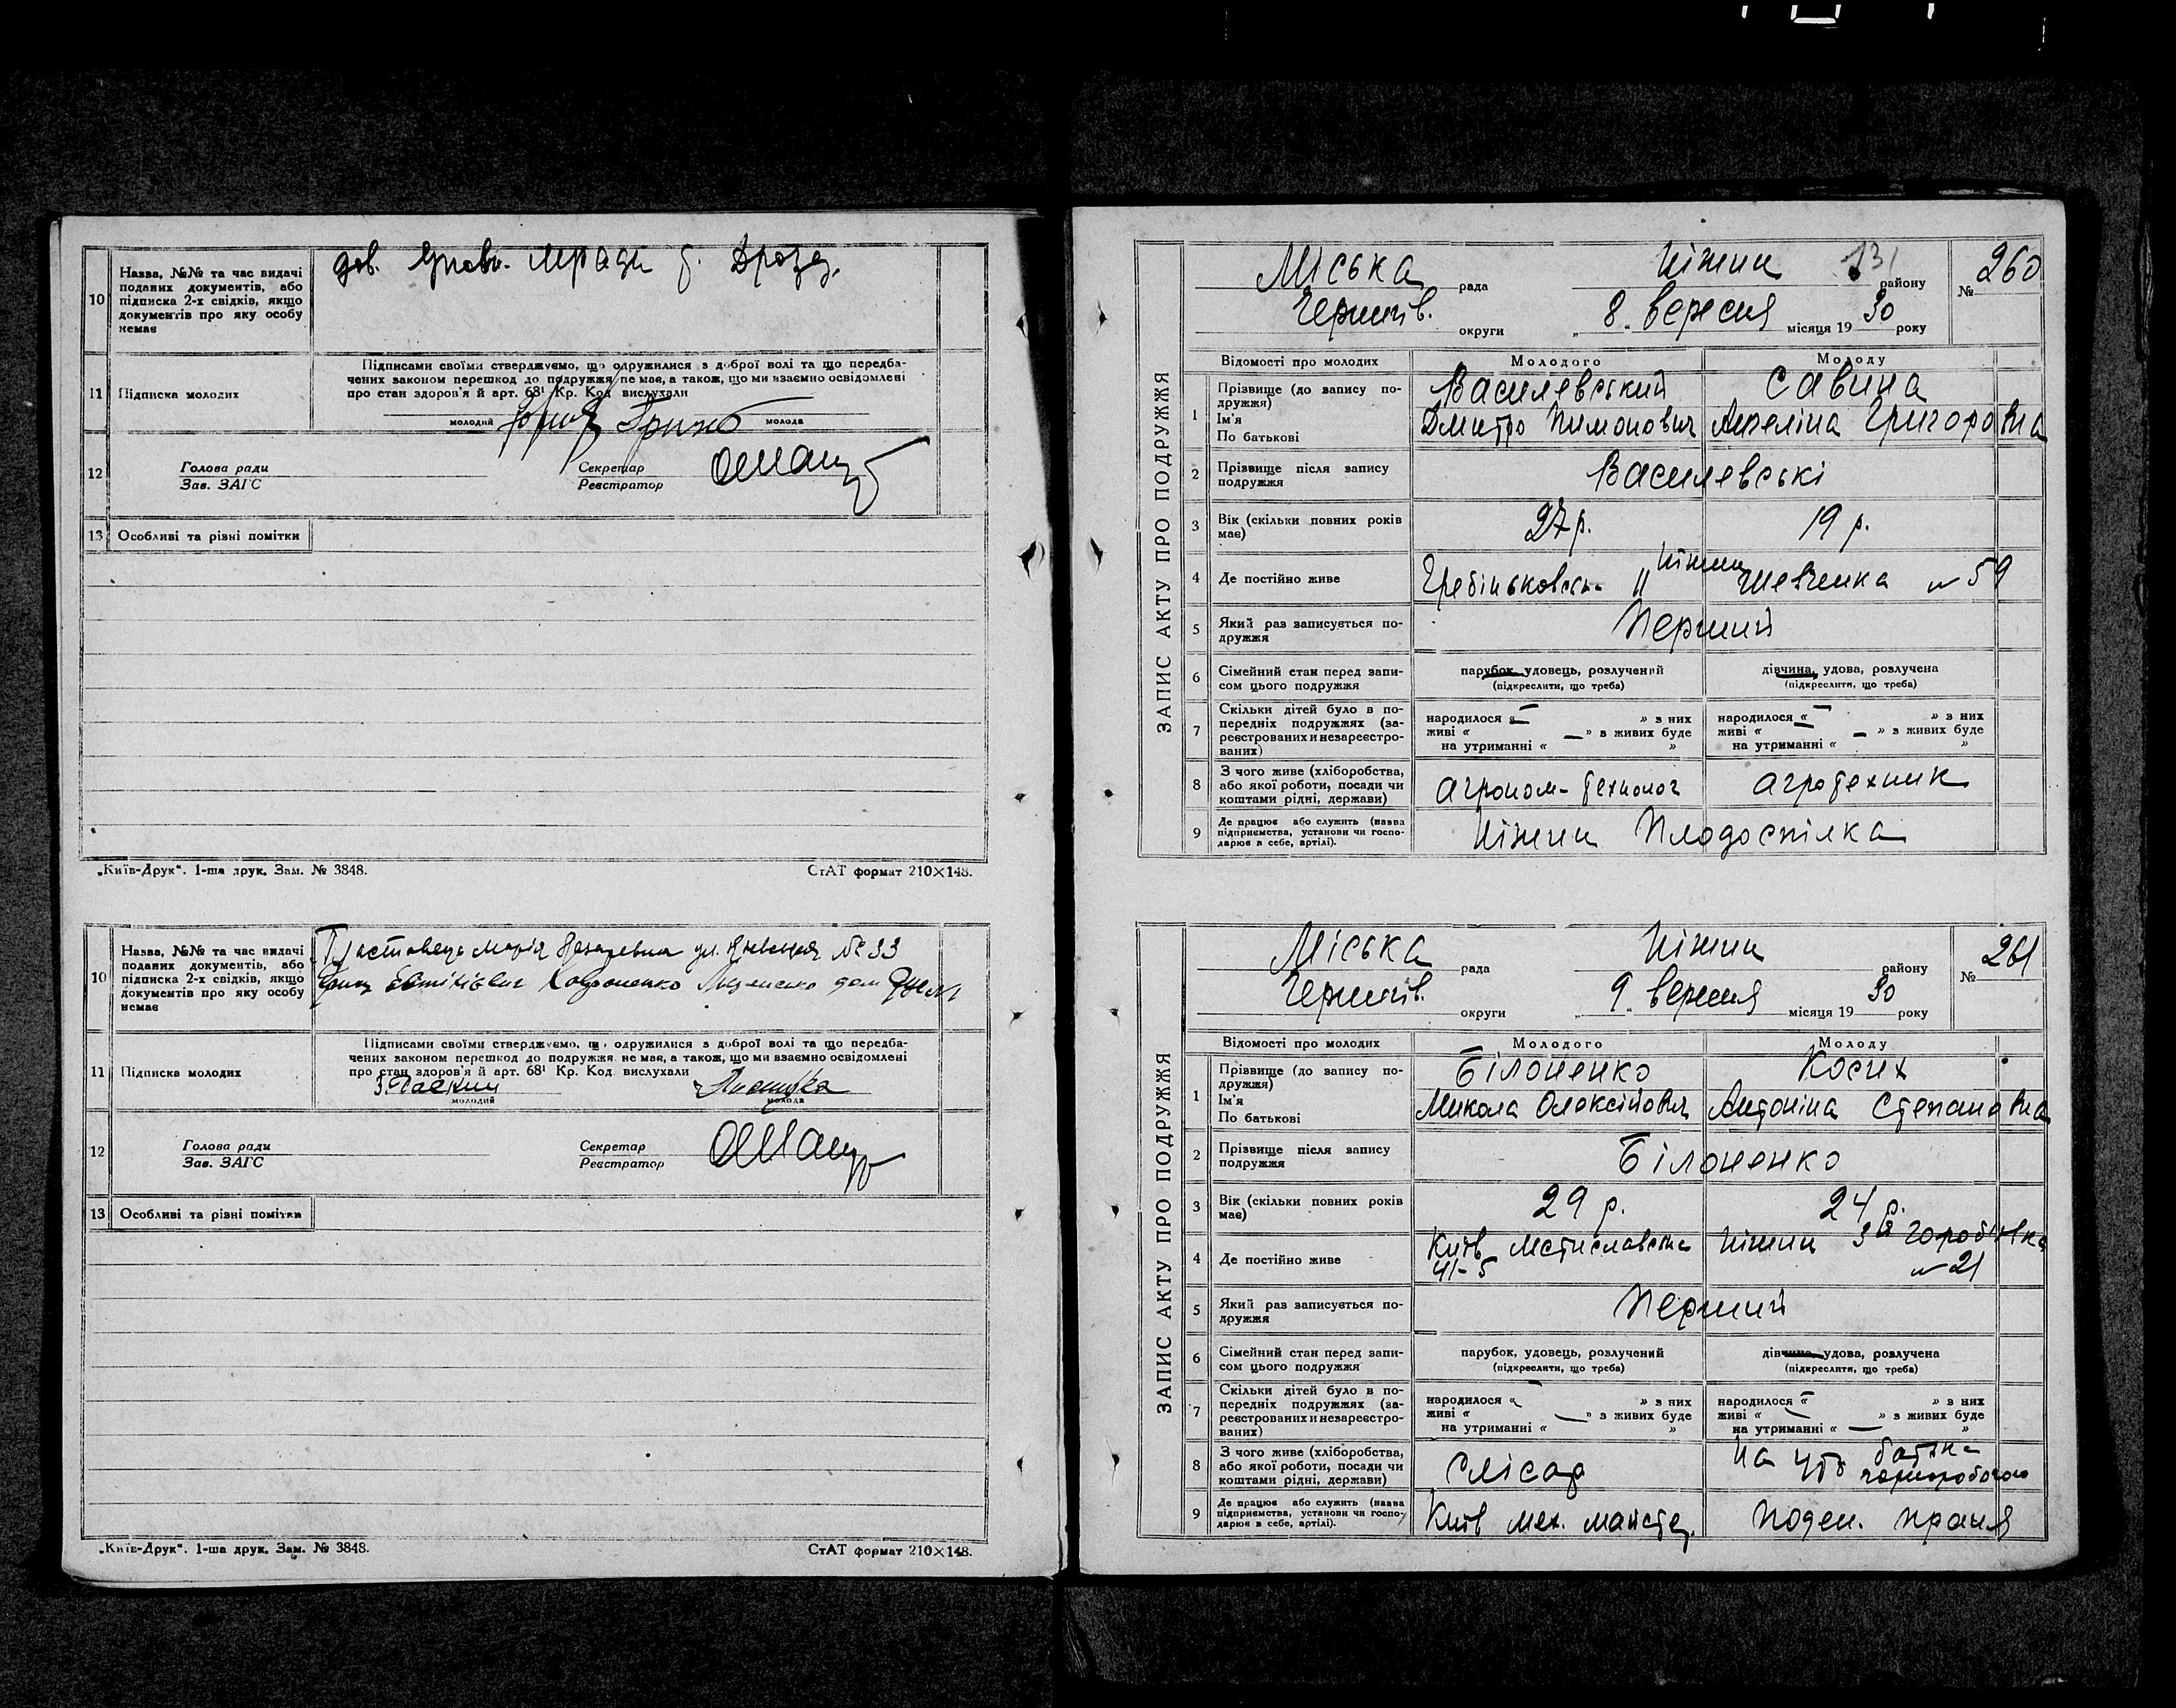 10
Назва, №№ та час видачі
поданих документів, або
підписка 2-х свідків, якщо
документів про яку особу
немає
дов.
11
Підписка молодих
Підписами своїми стверджуємо, що одружилися з доброї волі та що передба-
чених законом перешкод до подружжя не має, а також, що ми взаємно освідомлені
про стан здоров'я й арт. 68¹ Кр. Код вислухали
молодий молода
12
Голова ради
Зав. ЗАГС
Секретар
Реєстратор
13 Особливі та різні помітки
„Київ-Друк“. 1-ша друк. Зам. № 3848. СтАТ формат 210×148.
10
Назва, №№ та час видачі
поданих документів, або
підписка 2-х свідків, якщо
документів про яку особу
немає
Марія № 33
11
Підписка молодих
Підписами своїми стверджуємо, що одружилися з доброї волі та що передба-
чених законом перешкод до подружжя не має, а також, що ми взаємно освідомлені
про стан здоров'я й арт. 68¹ Кр. Код вислухали
молодий молода
12
Голова ради
Зав. ЗАГС
Секретар
Реєстратор
13 Особливі та різні помітки
„Київ-Друк“. 1-ша друк. Зам. № 3848. СтАТ формат 210×148.
ЗАПИС АКТУ ПРО ПОДРУЖЖЯ
Міська рада Ніжин району № 260
131
Черниг. округи „8„ вересня місяця 1930 року
Відомості про молодих Молодого Молоду
1
Прізвище (до запису по-
дружжя)
Ім'я
По батькові
Василевський Савина
Дмитро Пимонович Ангеліна Григоровна
2
Прізвище після запису
подружжя
Василевські
3
Вік (скільки повних років
має)
27 р. 19 р.
4
Де постійно живе
Гребіньковськ. Ніжин Шевченка № 59
5
Який раз записується по-
дружжя
Перший
6
Сімейний стан перед запи-
сом цього подружжя
парубок, удовець, розлучений
(підкреслити, що треба)
дівчина, удова, розлучена
(підкреслити, що треба)
7
Скільки дітей було в по-
передніх подружжях (за-
реєстрованих и незареєстро-
ваних)
народилося « — » з них
живі « — » з живих буде
на утриманні « »
народилося « — » з них
живі « — » з живих буде
на утриманні « »
8
З чого живе (хліборобства,
або якої роботи, посади чи
коштами рідні, держави)
агроном-технолог агротехник
9
Де працює або служить (назва
підприємства, установи чи госпо-
дарює в себе, артілі).
Ніжин Плодоспілка
ЗАПИС АКТУ ПРО ПОДРУЖЖЯ
Міська рада Ніжин району № 261
Черниг. округи „9„ вересня місяця 1930 року
Відомості про молодих Молодого Молоду
1
Прізвище (до запису по-
дружжя)
Ім'я
По батькові
Білоненко Косих
Микола Олексійович Антоніна Степановна
2
Прізвище після запису
подружжя
Білоненко
3
Вік (скільки повних років
має)
29 р. 24 р.
4
Де постійно живе
Київ Мстиславська Ніжин 3я
41-5 № 21
5
Який раз записується по-
дружжя
Перший
6
Сімейний стан перед запи-
сом цього подружжя
парубок, удовець, розлучений
(підкреслити, що треба)
дівчина, удова, розлучена
(підкреслити, що треба)
7
Скільки дітей було в по-
передніх подружжях (за-
реєстрованих и незареєстро-
ваних)
народилося « — » з них
живі « — » з живих буде
на утриманні « »
народилося « — » з них
живі « — » з живих буде
на утриманні « — »
8
З чого живе (хліборобства,
або якої роботи, посади чи
коштами рідні, держави)
слісар На утр батька
чорноробочого
9
Де працює або служить (назва
підприємства, установи чи госпо-
дарює в себе, артілі).
Київ мех. майстер. поден. праця